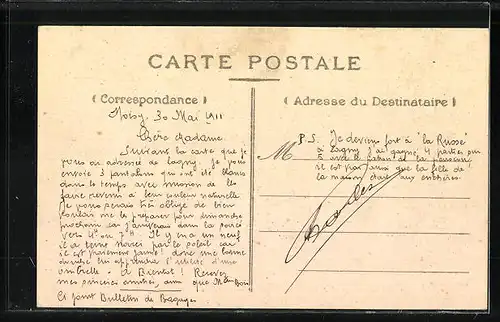 CARTE POSTALE
( Correspondance )
Noisy, 30 Mai 1911
Chère Madame.
Suivant la carte que je
vous ai adressée de Lagny. Je vous
envoie 3 pantalons qui ont été blancs
dans le temps avec mission de les
faire revenir à leur couleur naturelle
Je vous serais très obligé de bien
vouloir me le préparer pour dimanche
prochain car j'arriverai dans la soirée
vers 4h ou 7h. Il y en a un neuf
il a
par le soleil car
il est
jauni : donc une bonne
l'utilité d'une
ombrelle. à Bientôt ! Recevez
mes sincères amitiés, ainsi que Mr
Ci joint Bulletin de Bagages
( Adresse du Destinataire )
M
P.S. Je deviens fort à "la Russe"
à Lagny j'ai gagné 4 parties sur
5 avec le patron de la pension
il est vrai que la fille de
la maison était aux enchères.